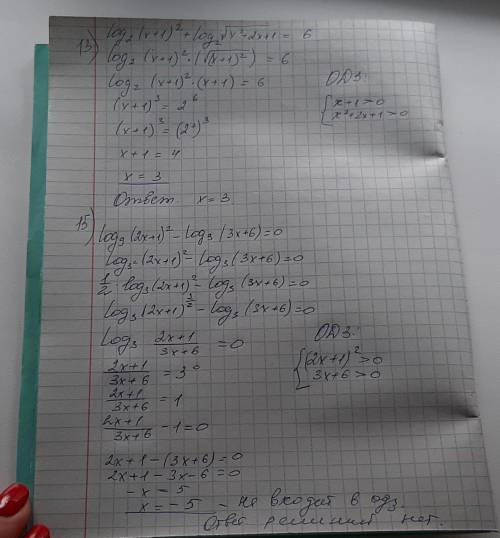 13) log₂ (x+1)² + log₂ √(x²+2x+1) = 6
log₂ (x+1)² · (√(x+1)²) = 6
log₂ (x+1)² · (x+1) = 6
ОДЗ:
(x+1)³ = 2⁶
{ x+1 > 0
x²+2x+1 > 0
(x+1)³ = (2²)³
x+1 = 4
x = 3
Ответ x = 3
15) log₉ (2x+1)² − log₃ (3x+6) = 0
log₃² (2x+1)² − log₃ (3x+6) = 0
1/2 log₃ (2x+1)² − log₃ (3x+6) = 0
log₃ (2x+1)^(2/2) − log₃ (3x+6) = 0
log₃ (2x+1)/(3x+6) = 0
ОДЗ:
(2x+1)/(3x+6) = 3⁰
{ (2x+1)² > 0
3x+6 > 0
(2x+1)/(3x+6) = 1
(2x+1)/(3x+6) − 1 = 0
2x+1 − (3x+6) = 0
2x+1 − 3x − 6 = 0
−x = 5
x = −5 – не входит в одз.
Ответ решений нет.